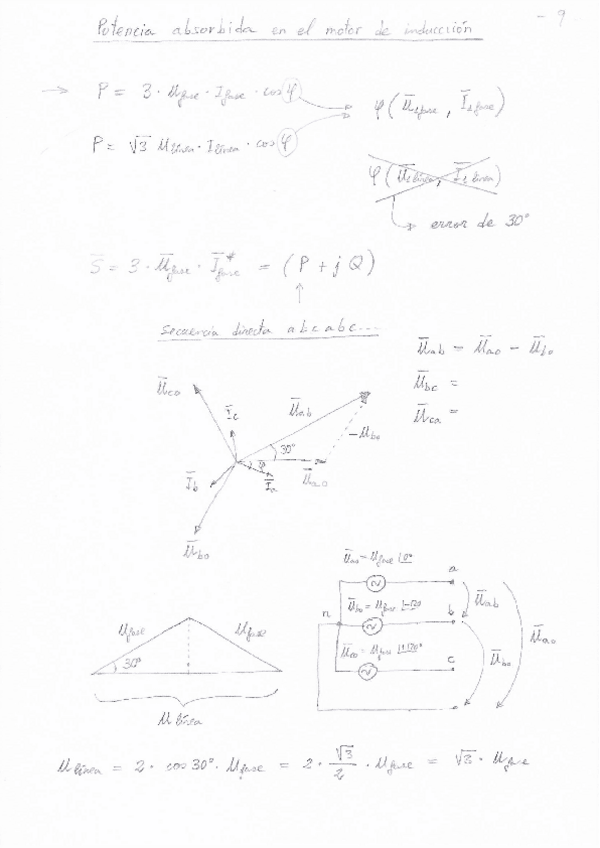 - 9
Potencia absorbida en el motor de inducción
→ P = 3 · Ufase · Ifase · cos φ
φ (U̅1fase , I̅1fase)
P = √3 Ulínea · Ilínea · cos φ
φ (U̅1línea, I̅1línea)
↳ error de 30°
S̅ = 3 · U̅fase · I̅fase* = (P + j Q)
↑
Secuencia directa abcabc...
U̅ab = U̅ao - U̅bo
U̅bc =
U̅ca =
U̅co
I̅c
U̅ab
-U̅bo
30°
φ
I̅b
I̅a
U̅ao
U̅bo
U̅ao = Ufase |0°
a
U̅bo = Ufase |-120
U̅ab
n
b
U̅ao
U̅co = Ufase |+120°
c
U̅bo
Ufase
Ufase
30°
U línea
Ulínea = 2 · cos 30° · Ufase = 2 · √3/2 · Ufase = √3 · Ufase